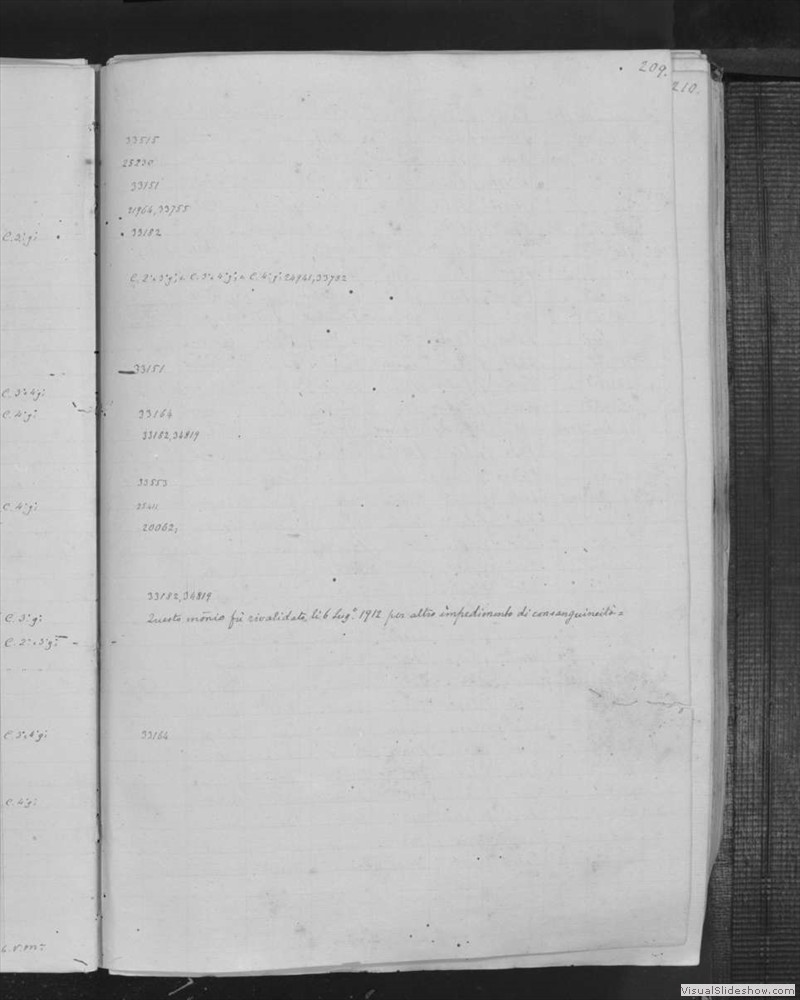 209.
210.
33515
25230
33151
21964, 33755
C. 2° gi
33182
C. 2° e 3° gi, e C. 3° e 4° gi, e C. 4° gi 24961, 33782
33151
C. 3° e 4° gi
C. 4° gi
33164
33182, 34819
33553
C. 4° gi
20062,
33182, 34819
C. 3° gi
Questo mõnio fù rivalidato li 6 Lugº 1912 per altro impedimento di consanguineità =
C. 2° e 3° gi
C. 3° e 4° gi
33164
C. 4° gi
VisualSlideshow.com